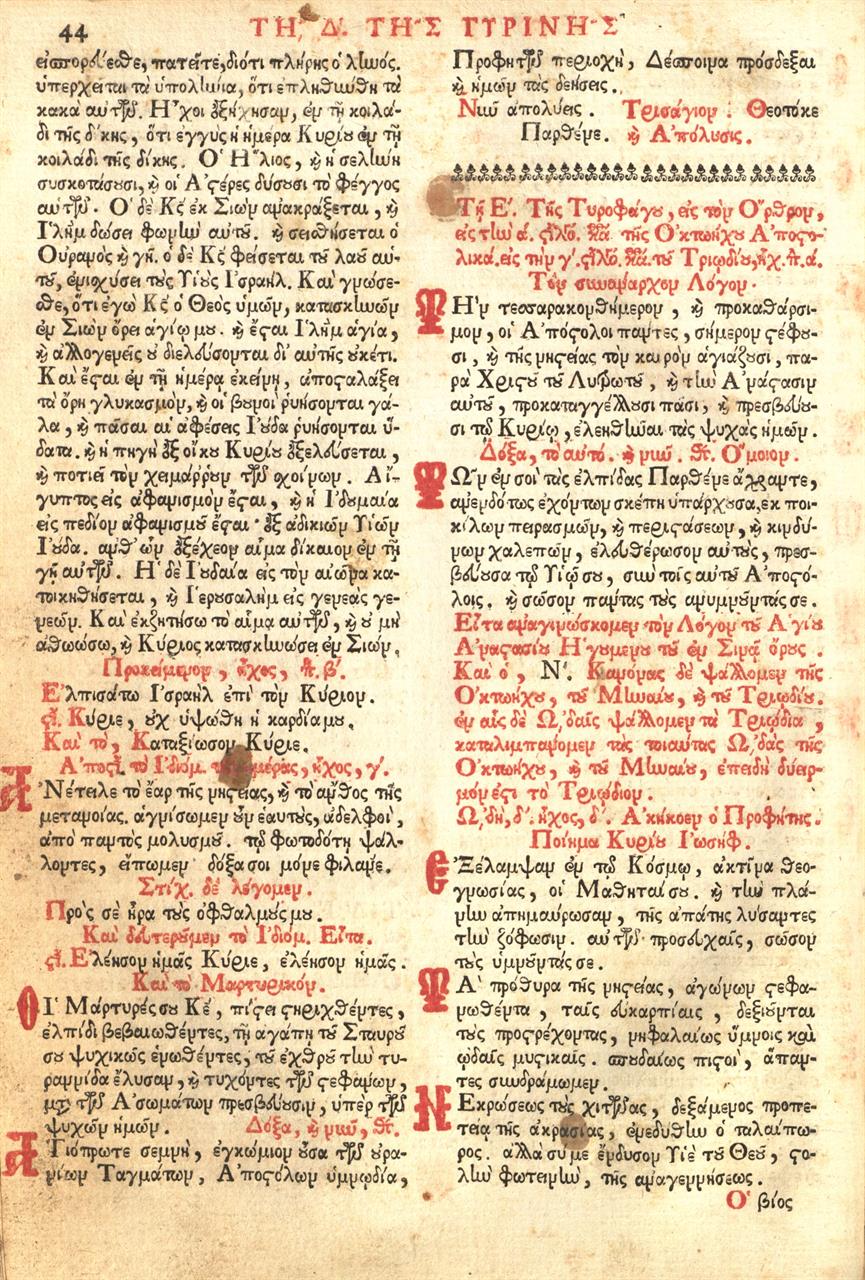 44
ΤΗ͂, Δ. ΤΗ͂Σ ΤΥΡΙΝΗ͂Σ
εἰσπορεύεσθε, πατεῖτε, διότι πλήρης ὁ ληνός.
ὑπερχεῖται τὰ ὑπολήνια, ὅτι ἐπληθύνθη τὰ
κακὰ αὐτῶν. Ἦχοι ἐξήχησαν, ἐν τῇ κοιλά-
δι τῆς δίκης, ὅτι ἐγγὺς ἡ ἡμέρα Κυρίου ἐν τῇ
κοιλάδι τῆς δίκης. Ὁ Ἥλιος, ϗ ἡ σελήνη
συσκοτάσουσι, ϗ οἱ Ἀστέρες δύσουσι τὸ φέγγος
αὐτῶν. Ὁ δὲ Κς ἐκ Σιὼν ἀνακράξεται, ϗ
Ἱλὴμ δώσει φωνὴν αὐτοῦ. ϗ σεισθήσεται ὁ
Οὐρανὸς ϗ γῆ. ὁ δὲ Κς φείσεται τοῦ λαοῦ αὐ-
τοῦ, ἐνισχύσει τοὺς Υἱοὺς Ἰσραήλ. Καὶ γνώσε-
σθε, ὅτι ἐγὼ Κς ὁ Θεὸς ὑμῶν, κατασκηνῶν
ἐν Σιὼν ὄρει ἁγίῳ μου. ϗ ἔσται Ἱλὴμ ἁγία,
ϗ ἀλλογενεῖς οὐ διελεύσονται δι' αὐτῆς οὐκέτι.
Καὶ ἔσται ἐν τῇ ἡμέρᾳ ἐκείνῃ, ἀποσταλάξει
τὰ ὄρη γλυκασμὸν, ϗ οἱ βουνοὶ ῥυήσονται γά-
λα, ϗ πᾶσαι αἱ ἀφέσεις Ἰούδα ῥυήσονται ὕ-
δατα. ϗ ἡ πηγὴ ἐξ οἴκου Κυρίου ἐξελεύσεται,
ϗ ποτιεῖ τὸν χειμάρρουν τῶν σχοίνων. Αἴ-
γυπτος εἰς ἀφανισμὸν ἔσται, ϗ ἡ Ἰδουμαία
εἰς πεδίον ἀφανισμοῦ ἔσται· ἐξ ἀδικιῶν Υἱῶν
Ἰούδα. ἀνθ' ὧν ἐξέχεον αἷμα δίκαιον ἐν τῇ
γῇ αὐτῶν. Ἡ δὲ Ἰουδαία εἰς τὸν αἰῶνα κα-
τοικηθήσεται, ϗ Ἱερουσαλὴμ εἰς γενεὰς γε-
νεῶν. Καὶ ἐκζητήσω τὸ αἷμα αὐτῶν, ϗ οὐ μὴ
ἀθωώσω, ϗ Κύριος κατασκηνώσει ἐν Σιών.
Προκείμενον, ἦχος, πλ. β΄.
Ἐλπισάτω Ἰσραὴλ ἐπὶ τὸν Κύριον.
στ. Κύριε, οὐχ ὑψώθη ἡ καρδία μου.
Καὶ τὸ, Καταξίωσον Κύριε.
Ἀποστ. τὸ Ἰδιόμ. τῆς ἡμέρας, ἦχος, γ΄.
ΑΝέτειλε τὸ ἔαρ τῆς νηστείας, ϗ τὸ ἄνθος τῆς
μετανοίας. ἁγνίσωμεν οὖν ἑαυτοὺς, ἀδελφοὶ,
ἀπὸ παντὸς μολυσμοῦ. τῷ φωτοδότῃ ψάλ-
λοντες, εἴπωμεν δόξα σοι μόνε φιλάνε.
Στίχ. δὲ λέγομεν.
Πρὸς σὲ ἦρα τοὺς ὀφθαλμούς μου.
Καὶ δευτεροῦμεν τὸ Ἰδιόμ. Εἶτα.
στ. Ἐλέησον ἡμᾶς Κύριε, ἐλέησον ἡμᾶς.
Καὶ τὸ Μαρτυρικόν.
ΟΙ Μάρτυρές σου Κε, πίστει στηριχθέντες,
ἐλπίδι βεβαιωθέντες, τῇ ἀγάπῃ τοῦ Σταυροῦ
σου ψυχικῶς ἑνωθέντες, τοῦ ἐχθροῦ τὴν τυ-
ραννίδα ἔλυσαν, ϗ τυχόντες τῶν στεφάνων,
μετὰ τῶν Ἀσωμάτων πρεσβεύουσιν, ὑπὲρ τῶν
ψυχῶν ἡμῶν. Δόξα, ϗ νῦν, Θκ.
ΑΓιόπρωτε σεμνὴ, ἐγκώμιον οὖσα τῶν οὐρα-
νίων Ταγμάτων, Ἀποστόλων ὑμνῳδία,
Προφητῶν περιοχὴ, Δέσποινα πρόσδεξαι
ϗ ἡμῶν τὰς δεήσεις.
Νῦν ἀπολύεις. Τρισάγιον. Θεοτόκε
Παρθένε. ϗ Ἀπόλυσις.
Τῇ Ε΄. Τῆς Τυροφάγου, εἰς τὸν Ὄρθρον,
εἰς τὴν ά. στιλο. κα. τῆς Ὀκτωήχου Ἀποστο-
λικά. εἰς τὴν γ΄. στιλο. κα. τοῦ Τριῳδίου, ἦχ. πλ. ά.
Τὸν συνάναρχον Λόγον.
ΤΗν τεσσαρακονθήμερον, ϗ προκαθάρσι-
μον, οἱ Ἀπόστολοι πάντες, σήμερον στέφου-
σι, ϗ τῆς νηστείας τὸν καιρὸν ἁγιάζουσι, πα-
ρὰ Χριστοῦ τοῦ Λυτρωτοῦ, ϗ τὴν Ἀνάστασιν
αὐτοῦ, προκαταγγέλλουσι πᾶσι, ϗ πρεσβεύου-
σι τῷ Κυρίῳ, ἐλεηθῆναι τὰς ψυχὰς ἡμῶν.
Δόξα, τὸ αὐτό. ϗ νῦν. Θκ. Ὅμοιον.
ΤΩν ἐν σοὶ τὰς ἐλπίδας Παρθένε ἄχραντε,
ἀνενδότως ἐχόντων σκέπη ὑπάρχουσα, ἐκ ποι-
κίλων πειρασμῶν, ϗ περιστάσεων, ϗ κινδύ-
νων χαλεπῶν, ἐλευθέρωσον αὐτοὺς, πρεσ-
βεύουσα τῷ Υἱῷ σου, σὺν τοῖς αὐτοῦ Ἀποστό-
λοις. ϗ σῶσον πάντας τοὺς ἀνυμνοῦντάς σε.
Εἶτα ἀναγινώσκομεν τὸν Λόγον τοῦ Ἁγίου
Ἀναστασίου Ἡγουμένου τοῦ ἐν Σινᾷ ὄρους.
Καὶ ὁ, Ν΄. Κανόνας δὲ ψάλλομεν τῆς
Ὀκτωήχου, τοῦ Μηναίου, ϗ τοῦ Τριῳδίου.
ἐν αἷς δὲ Ὠδαῖς ψάλλομεν τὰ Τριῴδια,
καταλιμπάνομεν τὰς τοιαύτας Ὠδὰς τῆς
Ὀκτωήχου, ϗ τοῦ Μηναίου, ἐπειδὴ δύσερ-
μόν ἐστι τὸ Τριῴδιον.
Ὠδὴ, δ΄. ἦχος, δ΄. Ἀκήκοεν ὁ Προφήτης.
Ποίημα Κυρίου Ἰωσήφ.
ΕΞέλαμψαν ἐν τῷ Κόσμῳ, ἀκτῖνα θεο-
γνωσίας, οἱ Μαθηταί σου. ϗ τὴν πλά-
νην ἀπημαύρωσαν, τῆς ἀπάτης λύσαντες
τὴν ζόφωσιν. αὐτῶν προσευχαῖς, σῶσον
τοὺς ὑμνοῦντάς σε.
ΤΑ πρόθυρα τῆς νηστείας, ἀγώνων στεφα-
νωθέντα, ταῖς εὐκαρπίαις, δεξιοῦνται
τοὺς προστρέχοντας, νηφαλαίως ὕμνοις καὶ
ᾠδαῖς μυστικαῖς. σπουδαίως πιστοὶ, ἅπαν-
τες συνδράμωμεν.
ΝΕκρώσεως τοὺς χιτῶνας, δεξάμενος προπε-
τείᾳ τῆς ἀκρασίας, ἐνεδύθην ὁ ταλαίπω-
ρος. ἀλλὰ σύ με ἔνδυσον Υἱὲ τοῦ Θεοῦ, στο-
λὴν φωτεινὴν, τῆς ἀναγεννήσεως.
Ὁ βίος